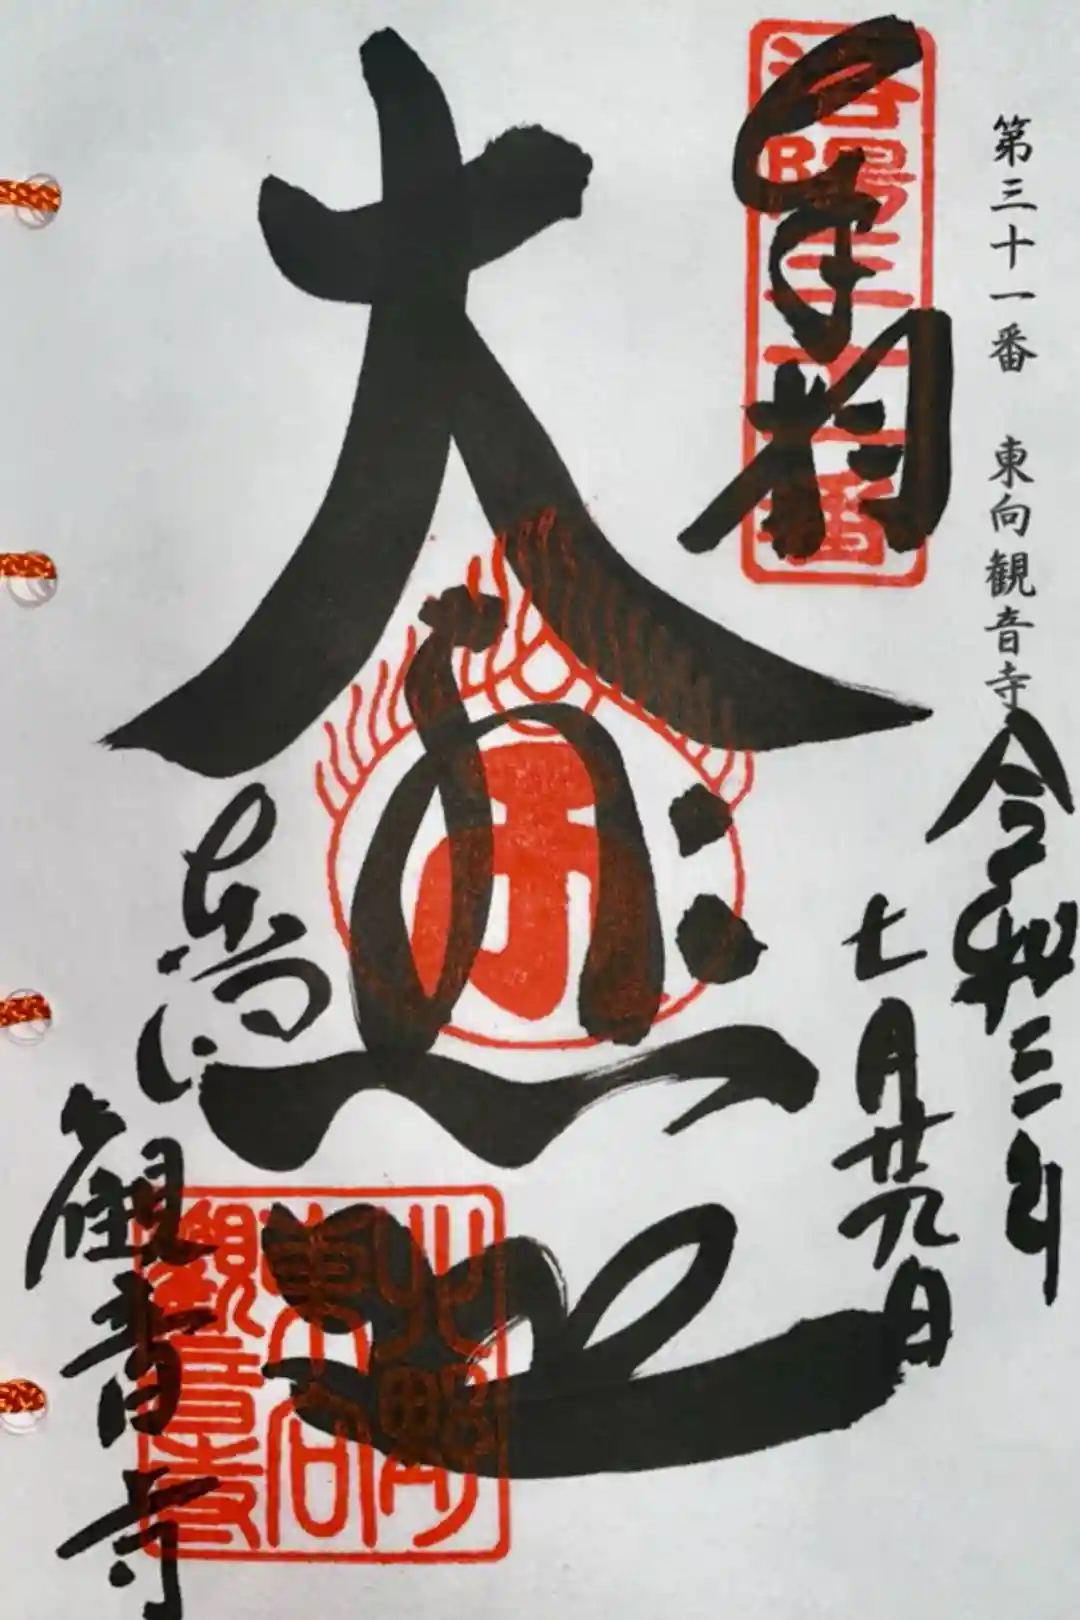 第三十一番　東向観音寺
令和三年
七月廿九日
奉拝
洛陽三十一番
大悲殿
北野
東向
観音寺
東向
観音寺